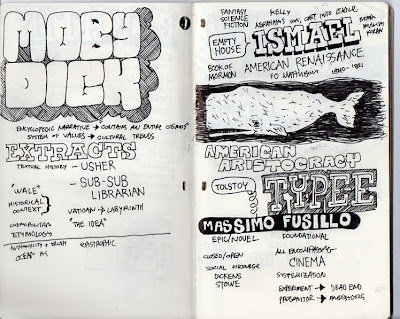 MOBY
DICK
ENCYCLOPEDIC NARRATIVE → CONTAINS AN ENTIRE COSMOS
SYSTEM OF VALUES → CULTURAL TRENDS
EXTRACTS
TEXTUAL HISTORY - USHER
- SUB-SUB
LIBRARIAN
"WALE"
HISTORICAL
CONTEXT
VATICAN → LABYRINTH
COSMOPOLITAN "THE IDEA"
ETYMOLOGY
AUTHENTICITY & TRUTH
OCEAN AS
FANTASY
SCIENCE
FICTION
KELLY
ABRAHAM'S SON, CAST INTO EXILE
EMPTY
HOUSE
ISMAEL
BIBLE
MUSLIM
KORAN
BOOK OF
MORMON
AMERICAN RENAISSANCE
FO MATTHIESSEN
AMERICAN
ARISTOCRACY
TOLSTOY
TYPEE
MASSIMO FUSILLO
EPIC/NOVEL FOUNDATIONAL
CLOSED/OPEN
ALL ENCOMPASSING
CINEMA
SOCIAL DISCOURSE
DICKENS
STOWE
SYSTEMIZATION
EXPERIMENT → DEAD END
PROGENITOR →